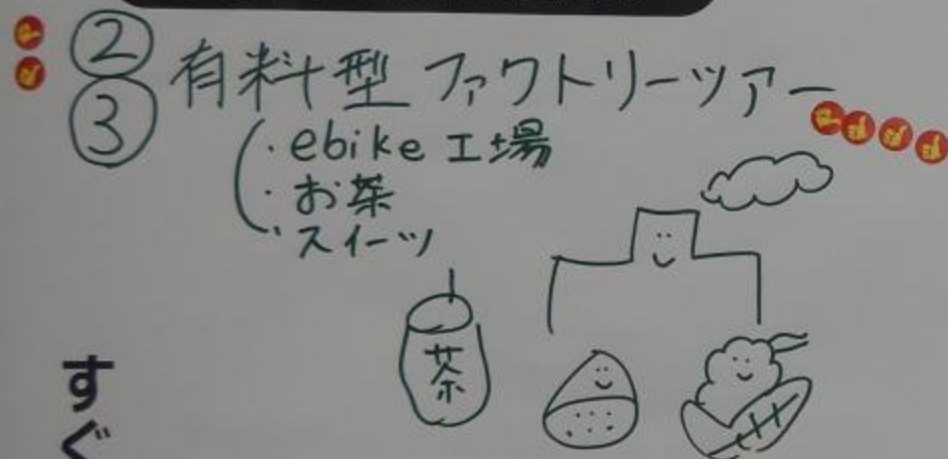 ②
③
有料型 ファクトリーツアー
・ebike 工場
・お茶
・スイーツ
茶
すぐ